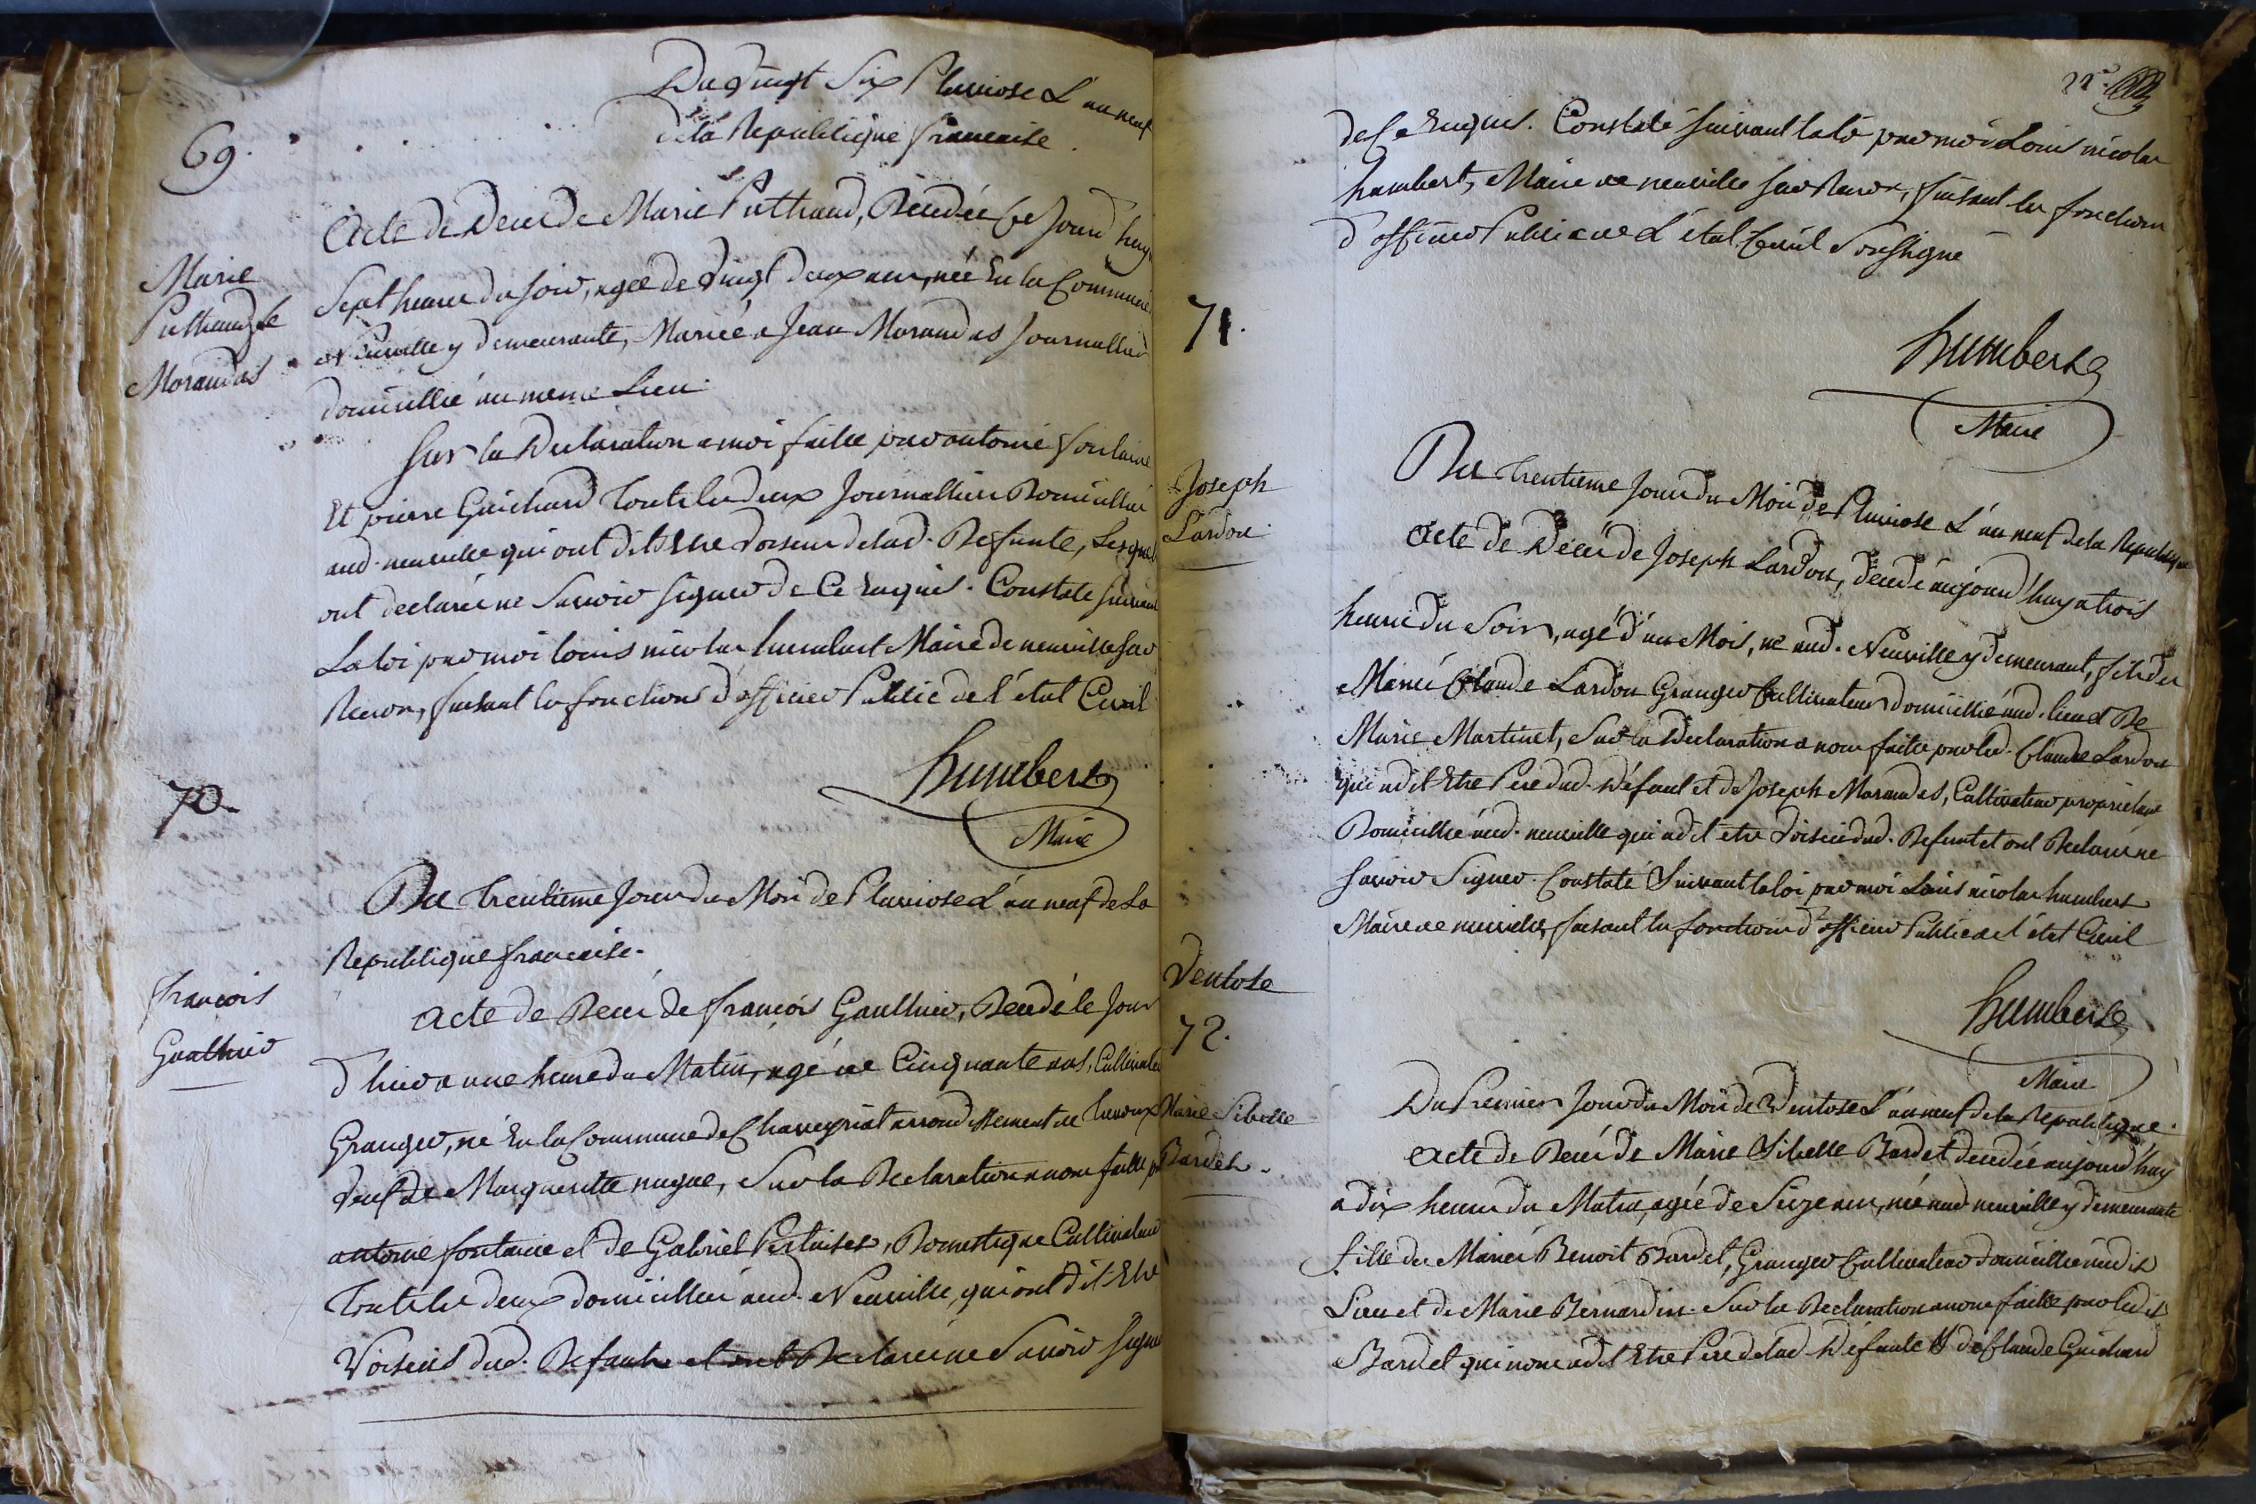 Du Vingt Six Pluviose L'an neuf
de la Republique francaise.
69.
Marie
Puthaud fe
Morandas
Acte de Deces de Marie Puthaud, Décédée Ce Jourd'huy
Sept heures du soir, agée de Vingt deux ans, née En la Commune
Neuville y demeurante, Mariée a Jean Morandas Journallier
domicillié au meme Lieu.
Sur la Declaration a moi faitte par antoine fontaine
Et pierre Guichard Tout les deux Journalliers Domicilliés
aud. neuville qui ont dit Etre Voiseins de lad. Defunte, Lesquels
ont declaré ne Savoir signer de Ce Enquis. Constaté suivant
La loi par moi louis nicolas humbert Maire de neuville sur
Renon, faisant les fonctions d'officier Public de l'état Civil
humbert
Maire
70.
Du Trentieme Jour du Moi de Pluviose L'an neuf de La
Republique francaise.
françois
Gauthier
Acte de Decés de françois Gauthier, Décédé le Jour
d'hier a une heure du Matin, agé de Cinquante ans, Cultivateur
Granger, né En la Commune de Chaveyriat arrondissement de Trevoux
Veuf de Margueritte nugue, Sur la Declaration a nous faitte par
antoine fontaine et de Gabriel Pertuiset, Domestique Cultivateur
Tout les deux domicilliés aud. Neuville, qui ont dit Etre
Voiseins dud. Defunt et ont Declaré ne Savoir signer
22e
de Ce Enquis. Constaté suivant la loi par moi Louis nicolas
humbert, Maire de neuville sur Renon, faisant les fonctions
d'officier Public de L'état Civil Soussigné
humbert
Maire
71.
Joseph
Lardon
Du Trentieme Jour du Moi de Pluviose L'an neuf de la Republique
Acte de Décés de Joseph Lardon, décédé aujourd'huy a trois
heures du Soir, agé d'un Mois, né aud. Neuville y demeurant, fils du
Mariés Claude Lardon Granger Cultivateur domicillié aud. lieu et De
Marie Martinet, Sur la Declaration a nous faitte par led. Claude Lardon
qui a dit Etre Pere dud. Défunt et de Joseph Morandas, Cultivateur proprietaire
Domicillié aud. neuville qui a dit etre Voisein dud. Defunt et ont Declaré ne
Savoir Signer. Constaté Suivant la loi par moi Louis nicolas humbert
Maire de neuville, faisant les fonctions d'officier Public de l'état Civil
humbert
Maire
Ventose
72.
Marie Sibelle
Bardet.
Du Premier Jour du Moi de Ventose L'an neuf de la Republique.
Acte de Decés de Marie Sibelle Bardet décédée aujourd'huy
a dix heures du Matin, agée de Seize ans, née aud neuville y demeurante
fille du Mariés Benoit Bardet, Granger Cultivateur domicillié audit
Lieu et de Marie Bernardin. Sur la Declaration a nous faitte par ledit
Bardet qui nous a dit Etre Pere de lad Défunte et de Claude Guichard